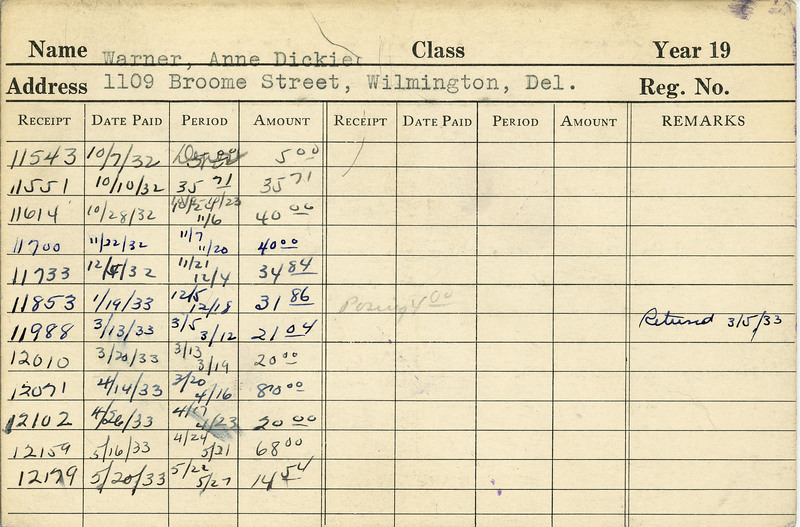 Name Warner, Anne Dickie Class Year 19
Address 1109 Broome Street, Wilmington, Del. Reg. No.
RECEIPT DATE PAID PERIOD AMOUNT RECEIPT DATE PAID PERIOD AMOUNT REMARKS
11543 10/7/32 5 00
11551 10/10/32 35 71 35 71
11614 10/28/32 10/24 11/6 40 00
11700 11/22/32 11/7 11/20 40 00
11733 12/5/32 11/21 12/4 34 84
11853 1/19/33 12/5 12/18 31 86 4 00
11988 3/13/33 3/5 3/12 21 04 Retured 3/5/33
12010 3/20/33 3/13 3/19 20 00
12071 4/14/33 3/20 4/16 80 00
12102 4/26/33 4/17 4/23 20 00
12159 5/16/33 4/24 5/21 68 00
12179 5/20/33 5/22 5/27 14 54